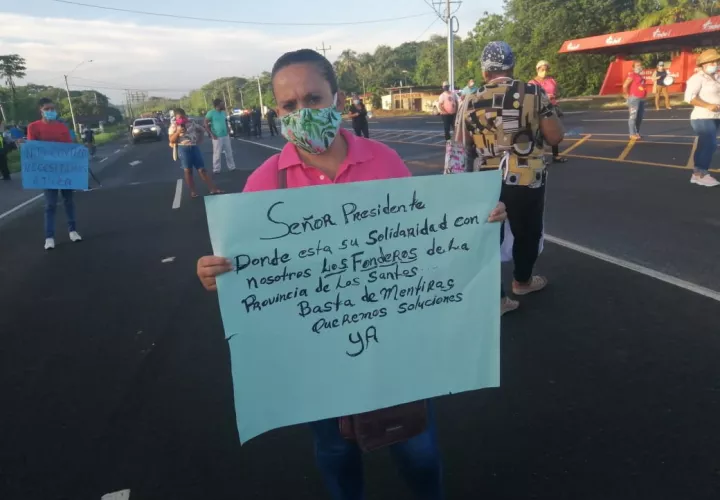 Señor Presidente
Donde esta su Solidaridad con
nosotros Los Fonderos de La
Provincia de Los Santos
Basta de Mentiras
Queremos Soluciones
YA